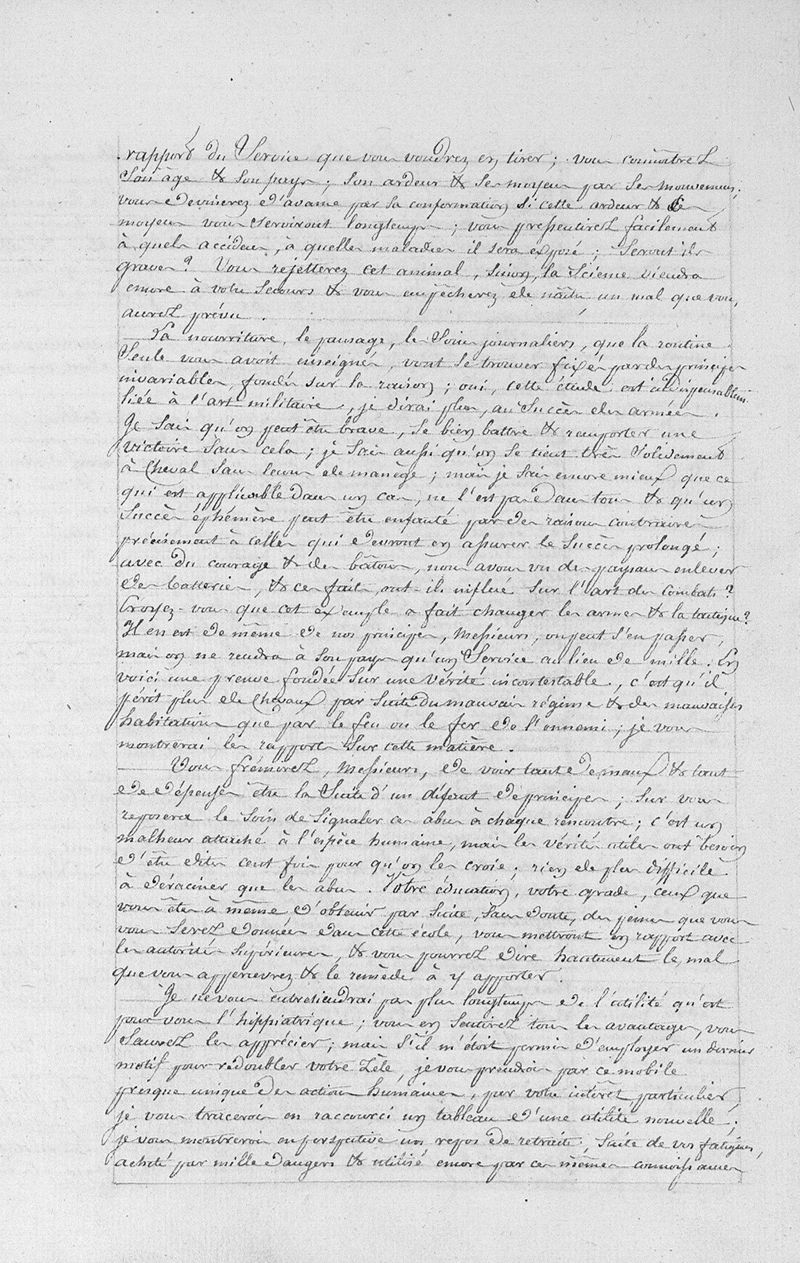 rapport du Service que vous voudrez en tirer ; vous connoitrez
Son âge & Son pays ; Son ardeur & Ses moyens par Ses mouvemens ;
vous devinerez d'avance par Sa conformation Si cette ardeur & Ses
moyens vous Serviront longtemps ; vous pressentirez facilement
à quels accidens, à quelles maladies il Sera exposé ; Seront ils
graves ? Vous rejetterez cet animal, Sinon, la Science viendra
encore à votre Secours & vous empêcherez de naître un mal que vous
aurez prévu .
La nourriture, le pansage, les Soins journaliers, que la routine
Seule vous avoit enseignés, vont Se trouver fixés par des principes
invariables, fondés Sur la raison ; oui, cette étude est indispensablement
liée à l'art militaire, je dirai plus, au Succès des armées .
Je Sais qu'on peut être brave, Se bien battre & remporter une
victoire Sans cela ; je Sais aussi qu'on Se tient très Solidement
à Cheval Sans leçons de manège ; mais je Sais encore mieux que ce
qui est applicable dans un cas, ne l'est pas dans tous & qu'un
Succès éphémère peut être enfanté par des raisons contraires
précisément à celles qui devront en assurer le Succès prolongé ;
avec du courage & des bâtons, nous avons vu des paysans enlever
des batteries, & ces faits ont-ils influé Sur l'art des Combats ?
Croyez-vous que cet exemple a fait changer les armes & la tactique ?
Il en est de même de nos principes, Messieurs, on peut S'en passer,
mais on ne rendra à Son pays qu'un Service au lieu de mille. En
voici une preuve fondée Sur une vérité incontestable, c'est qu'il
périt plus de Chevaux par Suite du mauvais régime & des mauvaises
habitations que par le feu ou le fer de l'ennemi ; je vous
montrerai les rapports Sur cette matière .
Vous frémirez, Messieurs, de voir tant de maux & tant
de dépenses être la Suite d'un défaut de principes ; Sur vous
reposera le Soin de Signaler ces abus à chaque rencontre ; c'est un
malheur attaché à l'espèce humaine, mais les vérités utiles ont besoin
d'être dites cent fois pour qu'on les croie ; rien de plus difficile
à déraciner que les abus . Votre éducation, votre grade, ceux que
vous êtes à même d'obtenir par Suite, Sans doute, des peines que vous
vous Serez données dans cette école, vous mettront en rapport avec
les autorités Supérieures, & vous pourrez dire hautement le mal
que vous appercevrez & le remède à y apporter .
Je ne vous entretiendrai pas plus longtemps de l'utilité qu'est
pour vous l'hippiatrique ; vous en Sentirez tous les avantages, vous
Saurez les apprécier ; mais S'il m'étoit permis d'employer un dernier
motif pour redoubler votre Zèle, je vous prendrois par ce mobile
presque unique des actions humaines, par votre intérêt particulier,
je vous tracerois en raccourci un tableau d'une utilité nouvelle ;
je vous montrerois en perspective un repos de retraite, Suite de vos fatigues,
acheté par mille dangers & utilisé encore par ces mêmes connoissances